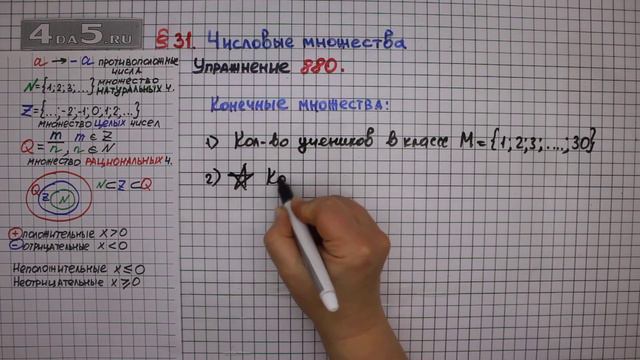 4DA5.RU
a → -a противоположные числа
N={1;2;3;...} множество натуральных ч.
Z={...;-2;-1;0;1;2;...}
множество целых чисел
Q = m/n, m∈Z n∈N
множество рациональных ч.
Q Z N N⊂Z⊂Q
+ положительные x>0
− отрицательные x<0
Неположительные x≤0
Неотрицательные x≥0
§ 31. Числовые множества
Упражнение 880.
Конечные множества:
1) Кол-во учеников в классе M={1;2;3;...;30}
2) ☆ Ко